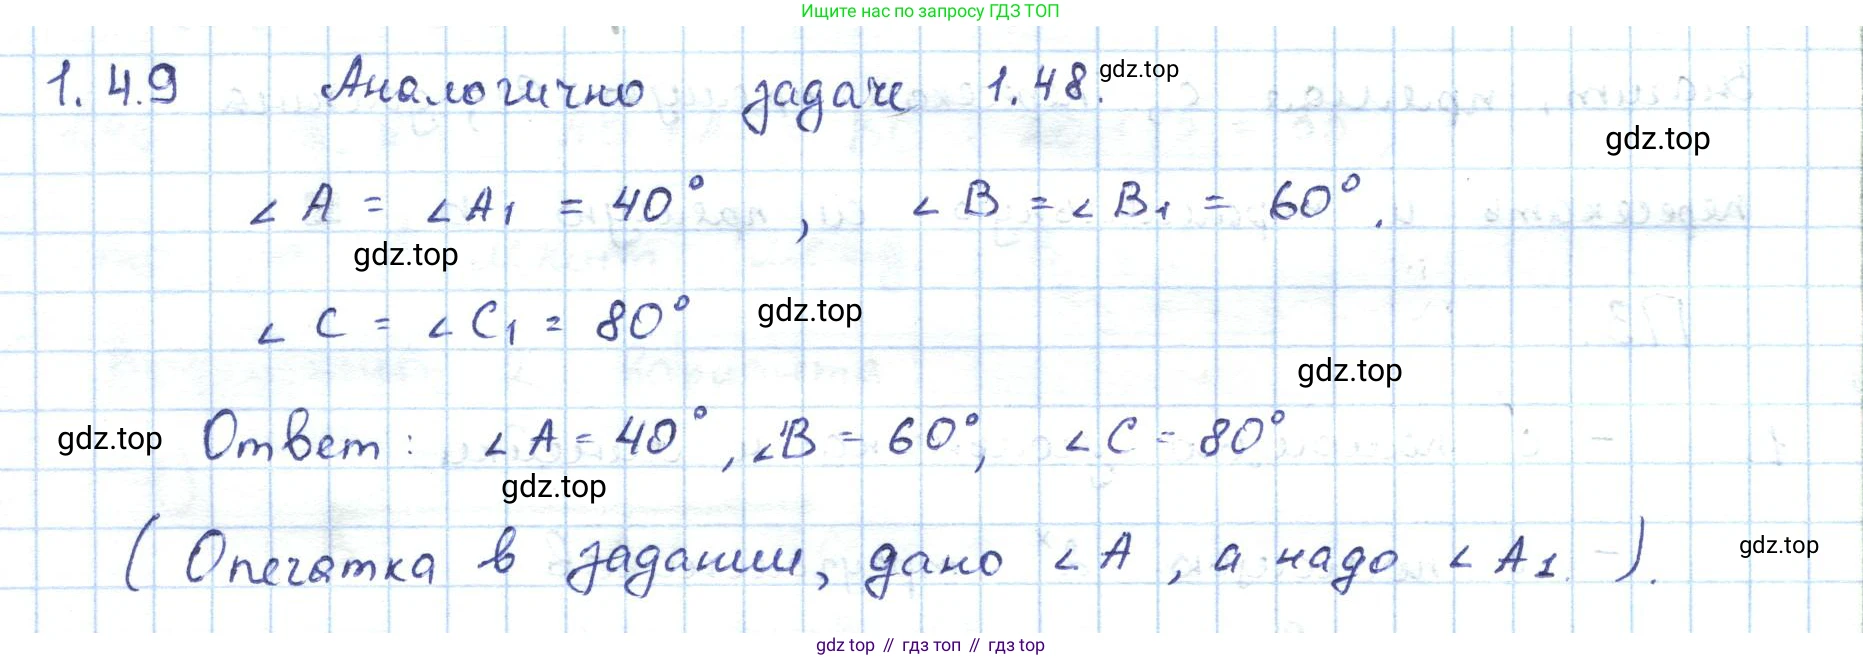 Ищите нас по запросу ГДЗ ТОП
1.49 Аналогично задаче 1.48.
gdz.top
gdz.top
∠A = ∠A₁ = 40°, ∠B = ∠B₁ = 60°.
gdz.top
∠C = ∠C₁ = 80°
gdz.top
gdz.top
gdz.top
Ответ: ∠A = 40°, ∠B = 60°, ∠C = 80°
gdz.top
(Опечатка в задании, дано ∠A, а надо ∠A₁).
gdz.top
gdz top // гдз топ // гдз top